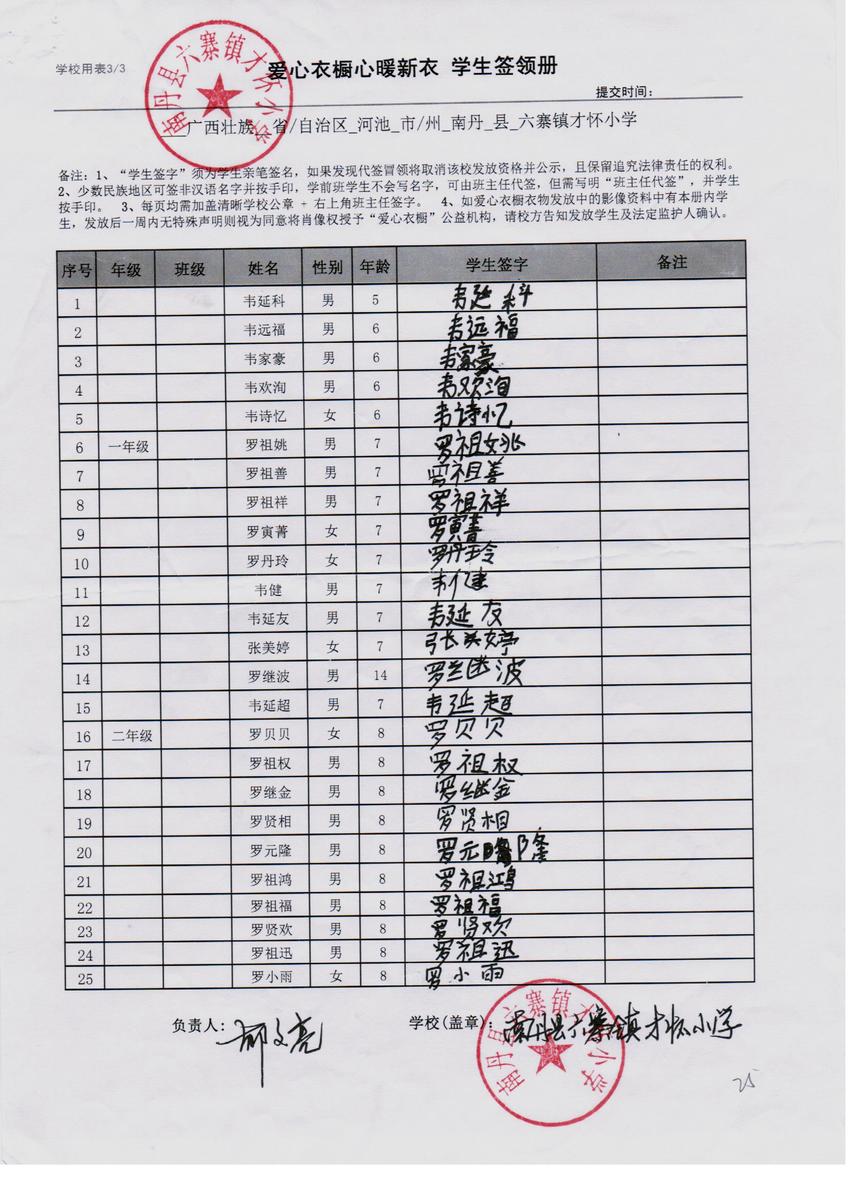 学校用表3/3
爱心衣橱心暖新衣 学生签领册
南丹县六寨镇才怀小学
提交时间：
广西壮族_省/自治区_河池_市/州_南丹_县_六寨镇才怀小学
备注：1、“学生签字”须为学生亲笔签名，如果发现代签冒领将取消该校发放资格并公示，且保留追究法律责任的权利。
2、少数民族地区可签非汉语名字并按手印，学前班学生不会写名字，可由班主任代签，但需写明“班主任代签”，并学生
按手印。 3、每页均需加盖清晰学校公章 + 右上角班主任签字。 4、如爱心衣橱衣物发放中的影像资料中有本册内学
生，发放后一周内无特殊声明则视为同意将肖像权授予“爱心衣橱”公益机构，请校方告知发放学生及法定监护人确认。
序号 年级 班级 姓名 性别 年龄 学生签字 备注
1 韦延科 男 5 韦延科
2 韦远福 男 6 韦远福
3 韦家豪 男 6 韦家豪
4 韦欢洵 男 6 韦欢洵
5 韦诗忆 女 6 韦诗忆
6 一年级 罗祖姚 男 7 罗祖姚
7 罗祖善 男 7 罗祖善
8 罗祖祥 男 7 罗祖祥
9 罗寅菁 女 7 罗寅菁
10 罗丹玲 女 7 罗丹玲
11 韦健 男 7 韦健
12 韦延友 男 7 韦延友
13 张美婷 女 7 张美婷
14 罗继波 男 14 罗继波
15 韦延超 男 7 韦延超
16 二年级 罗贝贝 女 8 罗贝贝
17 罗祖权 男 8 罗祖权
18 罗继金 男 8 罗继金
19 罗贤相 男 8 罗贤相
20 罗元隆 男 8 罗元隆
21 罗祖鸿 男 8 罗祖鸿
22 罗祖福 男 8 罗祖福
23 罗贤欢 男 8 罗贤欢
24 罗祖迅 男 8 罗祖迅
25 罗小雨 女 8 罗小雨
负责人： 学校(盖章)：南丹县六寨镇才怀小学
南丹县六寨镇才怀小学
25